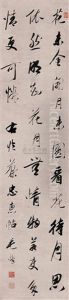 花未全開月未圓看花待月思
依然明知花月無情物若使多
情更可憐 蔡忠惠